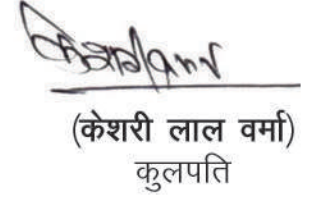 (केशरी लाल वर्मा)
कुलपति